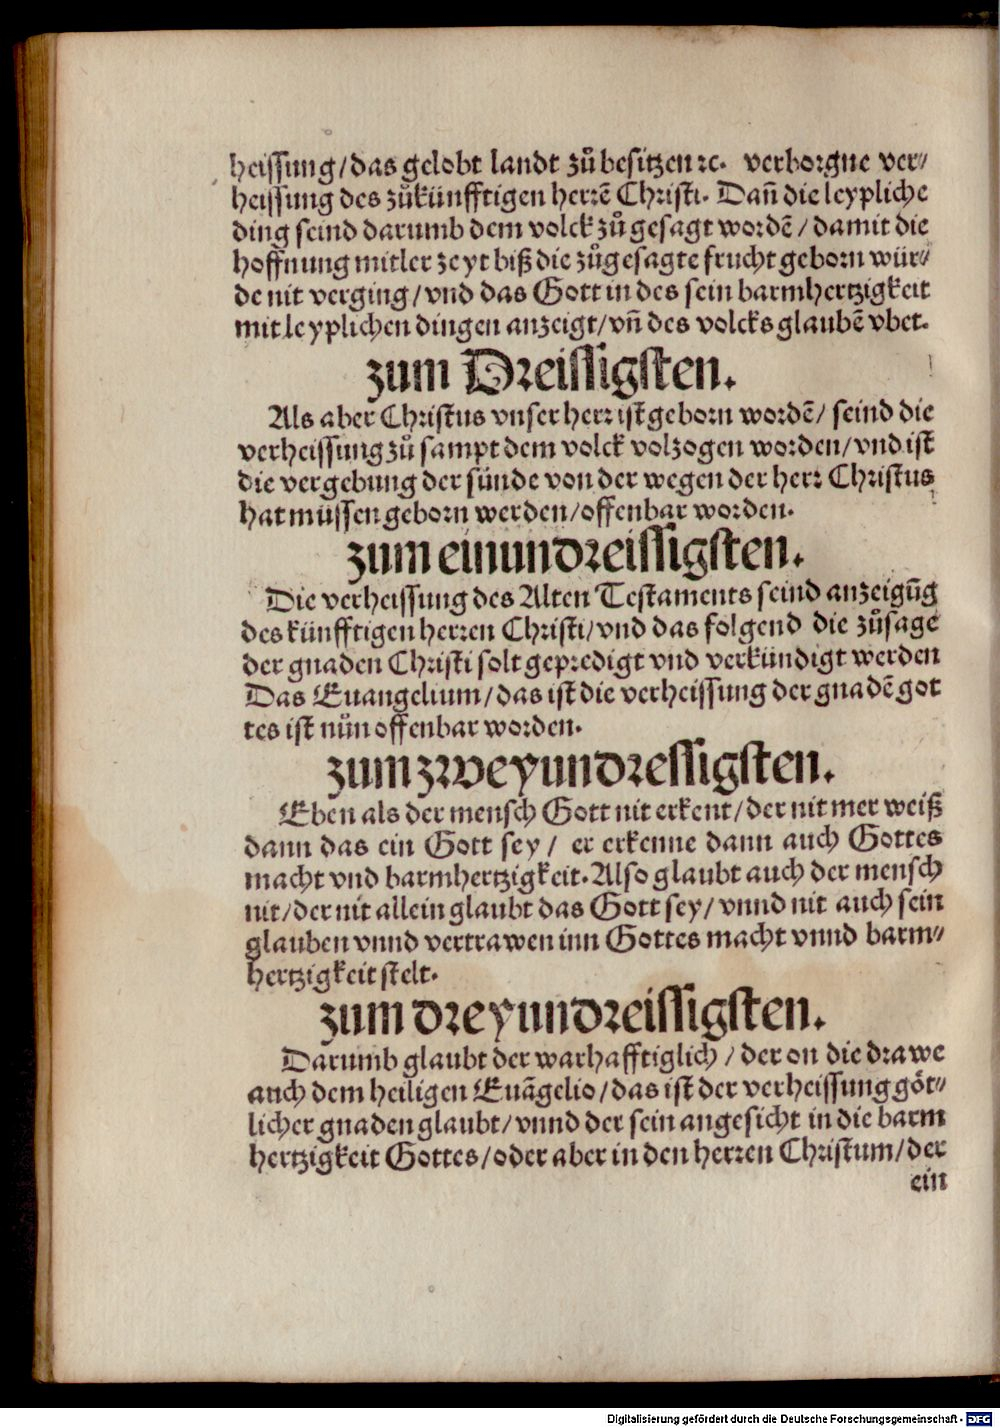 heissung/das gelobt landt zů besitzen ꝛc. verborgne ver⸗
heissung des zůkünfftigen herrē Christi. Dan̄ die leypliche
ding seind darumb dem volck zů gesagt wordē / damit die
hoffnung mitler zeyt biß die zůgesagte frucht geborn wür⸗
de nit verging/vnd das Gott in des sein barmhertzigkeit
mit leyplichen dingen anzeigt/vn̄ des volcks glaubē vbet.
zum Dreissigsten.
Als aber Christus vnser herr ist geborn wordē/ seind die
verheissung zů sampt dem volck volzogen worden/vnd ist
die vergebung der sünde von der wegen der herr Christus
hat müssen geborn werden/offenbar worden.
zum einundreissigsten.
Die verheissung des Alten Testaments seind anzeigūg
des künfftigen herren Christi/vnd das folgend die zůsage
der gnaden Christi solt gepredigt vnd verkündigt werden
Das Euangelium/das ist die verheissung der gnadē got
tes ist nůn offenbar worden.
zum zweyundressigsten.
Eben als der mensch Gott nit erkent/der nit mer weiß
dann das ein Gott sey / er erkenne dann auch Gottes
macht vnd barmhertzigkeit. Also glaubt auch der mensch
nit/der nit allein glaubt das Gott sey/vnnd nit auch sein
glauben vnnd vertrawen inn Gottes macht vnnd barm⸗
hertzigkeit stelt.
zum dreyundreissigsten.
Darumb glaubt der warhafftiglich / der on die drawe
auch dem heiligen Euāgelio/das ist der verheissung göt⸗
licher gnaden glaubt/vnnd der sein angesicht in die barm
hertzigkeit Gottes/oder aber in den herren Christum/der
ein
Digitalisierung gefördert durch die Deutsche Forschungsgemeinschaft - DFG